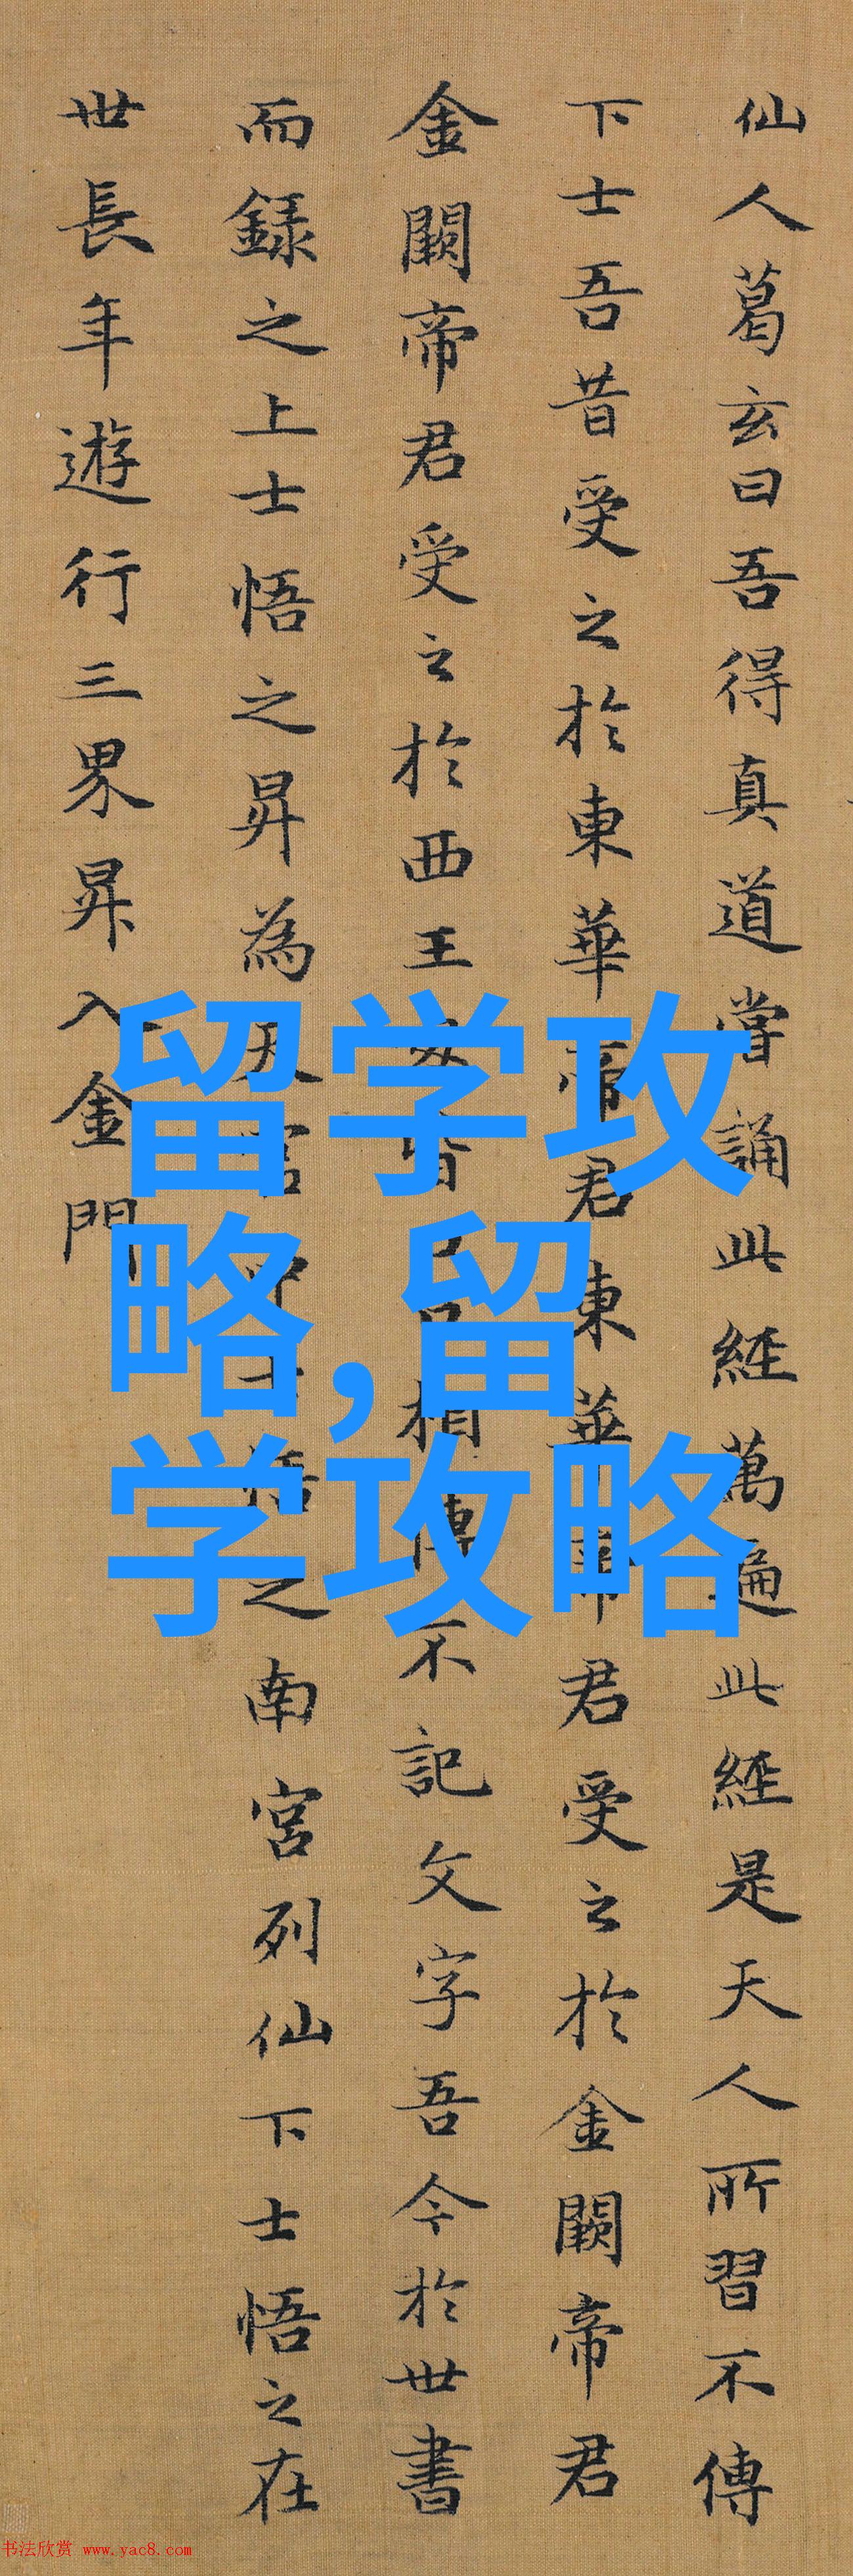 仙人葛玄曰吾得真道嘗誦此經萬遍此經是天人所習不傳
下士吾昔受之於東華帝君東華帝君受之於金闕帝君
金闕帝君受之於西王母皆口口相傳不記文字吾今於世書
而録之上士悟之昇為天官中士悟之南宮列仙下士悟之在
世長年遊行三界昇入金門
留学攻
略,留
学攻略
书法欣赏 www.yac8.com